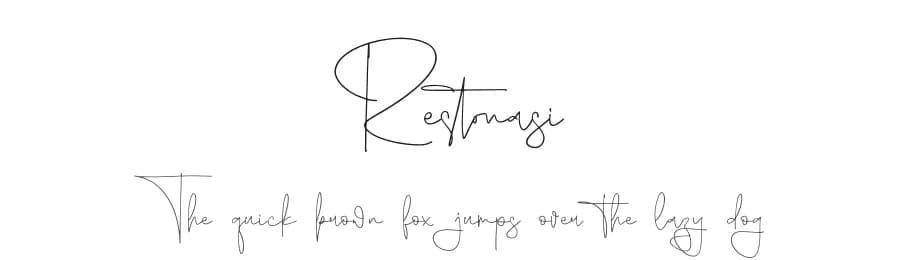 Restonasi
The quick brown fox jumps over the lazy dog